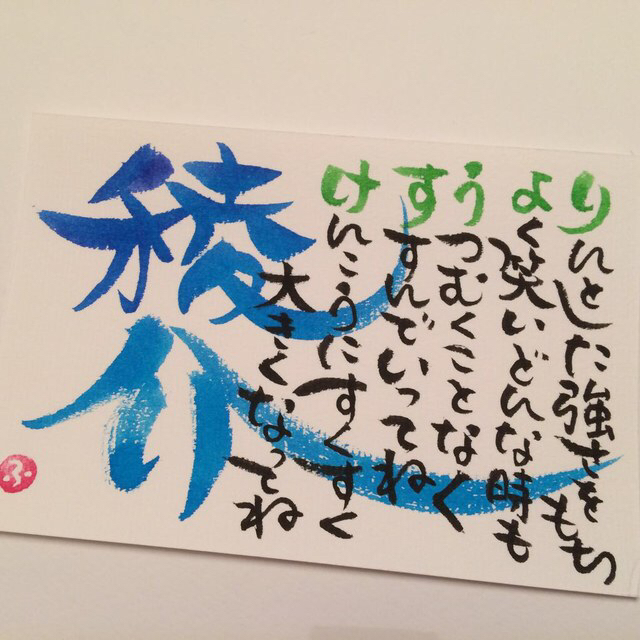 りんとした強さをもち
よく笑いどんな時も
うつむくことなく
すすんでいってね
けんこうにすくすく
大きくなってね
稜介
ふ